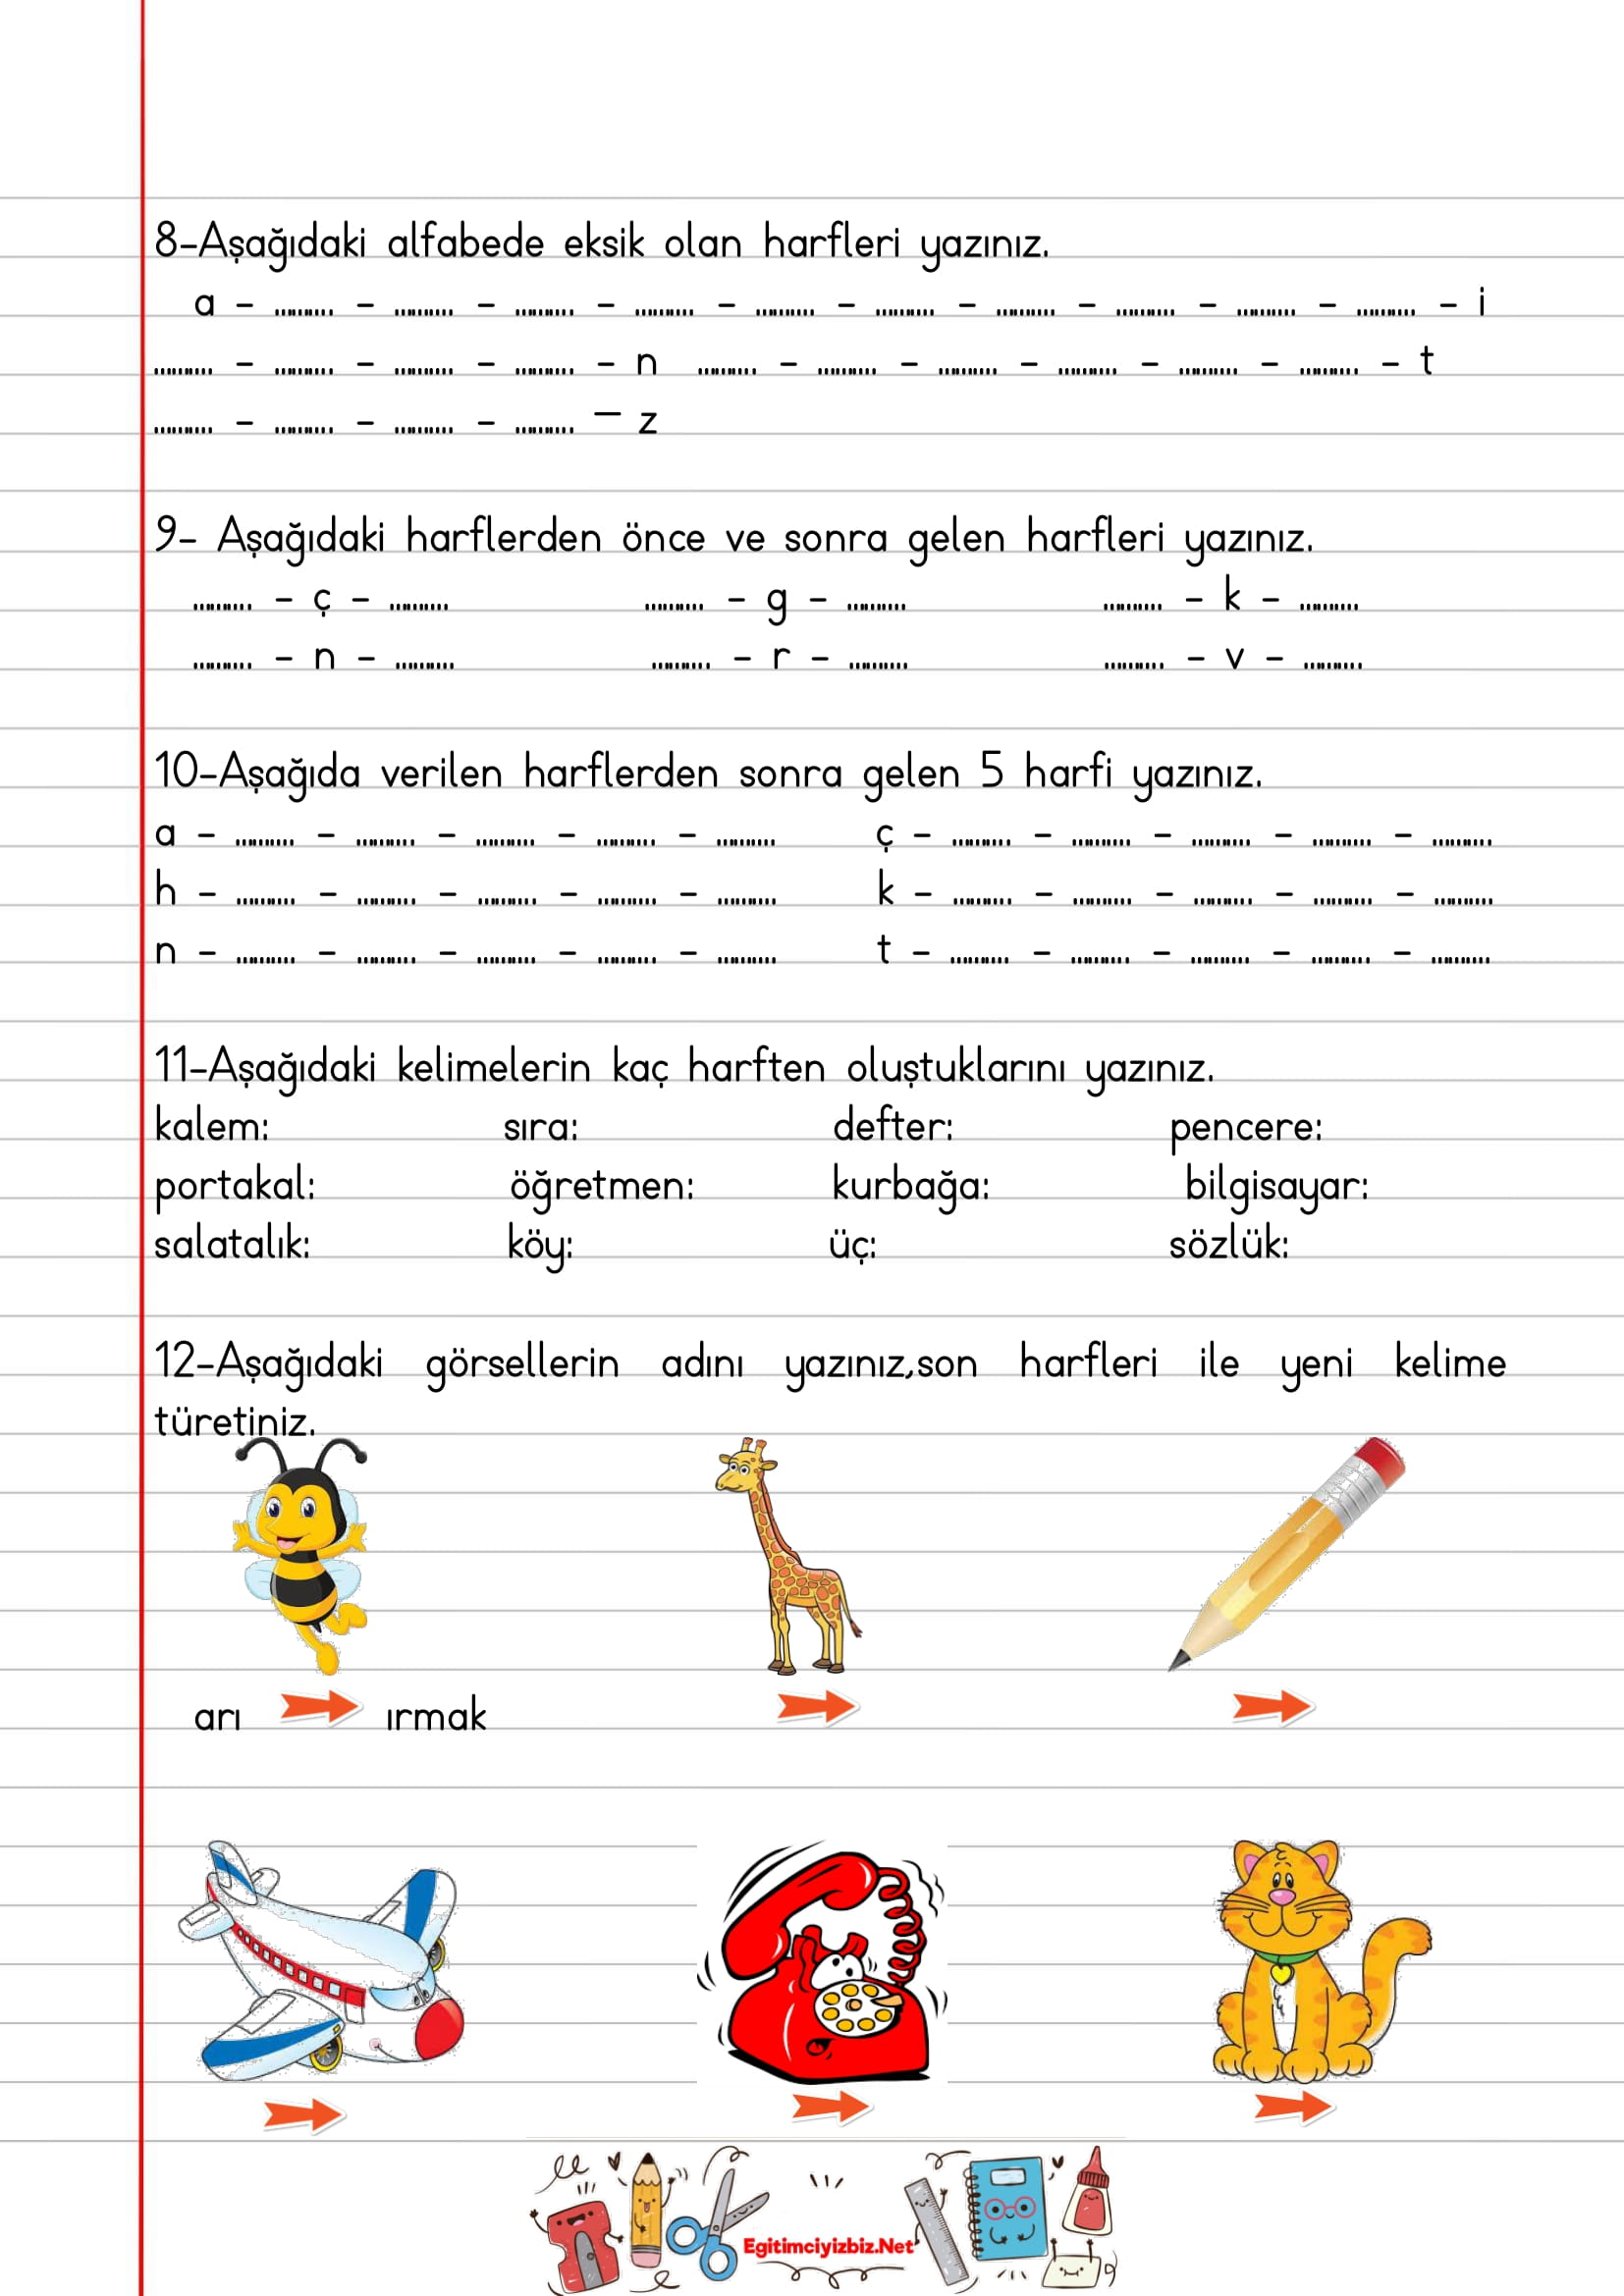 8-Aşağıdaki alfabede eksik olan harfleri yazınız.
a - ……… - ……… - ……… - ……… - ……… - ……… - ……… - ……… - ……… - ……… - i
……… - ……… - ……… - ……… - n ……… - ……… - ……… - ……… - ……… - ……… - t
……… - ……… - ……… - ……… – z
9- Aşağıdaki harflerden önce ve sonra gelen harfleri yazınız.
……… - ç - ……… ……… - g - ……… ……… - k - ………
……… - n - ……… ……… - r - ……… ……… - v - ………
10-Aşağıda verilen harflerden sonra gelen 5 harfi yazınız.
a - ……… - ……… - ……… - ……… - ……… ç - ……… - ……… - ……… - ……… - ………
h - ……… - ……… - ……… - ……… - ……… k - ……… - ……… - ……… - ……… - ………
n - ……… - ……… - ……… - ……… - ……… t - ……… - ……… - ……… - ……… - ………
11-Aşağıdaki kelimelerin kaç harften oluştuklarını yazınız.
kalem: sıra: defter: pencere:
portakal: öğretmen: kurbağa: bilgisayar:
salatalık: köy: üç: sözlük:
12-Aşağıdaki görsellerin adını yazınız,son harfleri ile yeni kelime
türetiniz.
arı ırmak
Egitimciyizbiz.Net